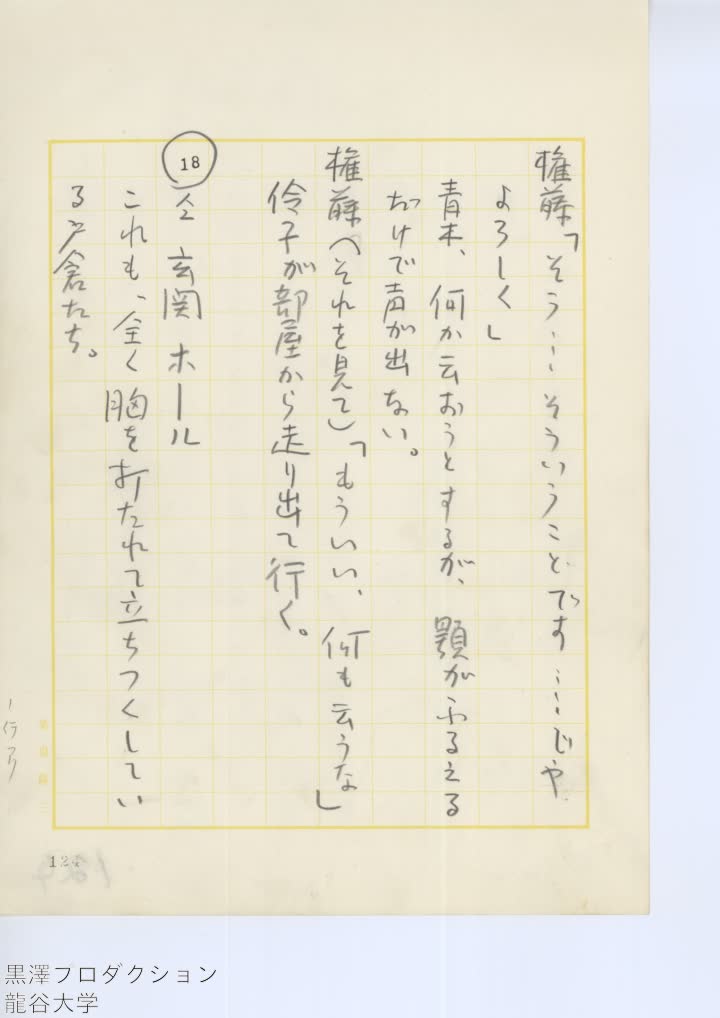 権藤「そう…そういうことです…じゃ
よろしく」
青木、何か云おうとするが、顎がふるえる
だけで声が出ない。
権藤（それを見て）「もういい、何も云うな」
伶子が部屋から走り出て行く。
18
仝 玄関ホール
これも、全く胸を打たれて立ちつくしてい
る戸倉たち。
124
黒澤プロダクション
龍谷大学